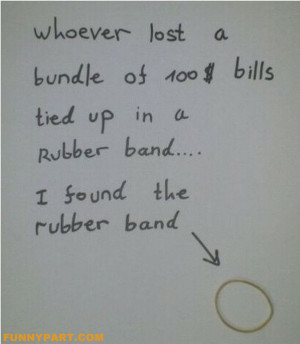 whoever lost a
bundle of 100$ bills
tied up in a
Rubber band....
I found the
rubber band
FUNNYPART.COM